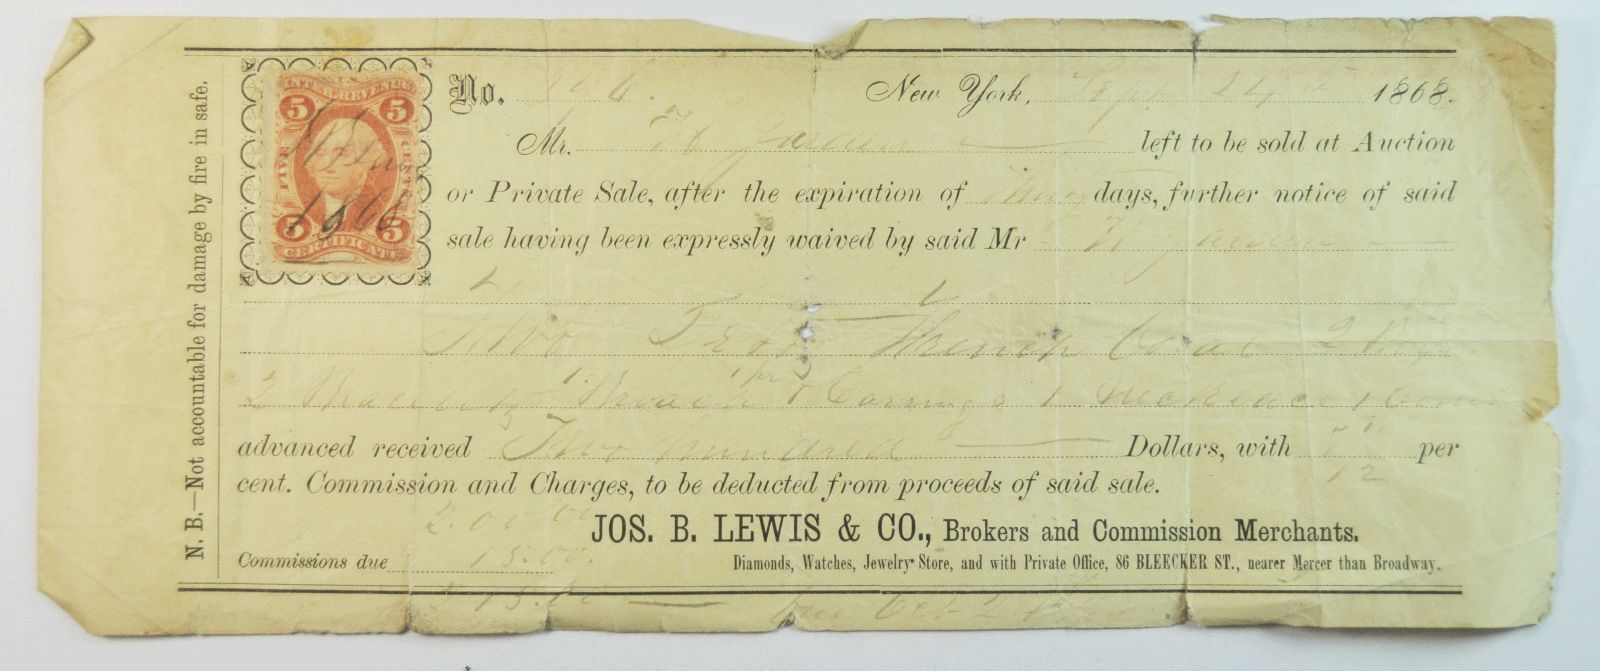 N. B.—Not accountable for damage by fire in safe.
U.S.
INTER. REVENUE
5 5
FIVE CENTS
1868
5 5
CERTIFICATE
No. New York, Sept 24th 1868.
Mr. left to be sold at Auction
or Private Sale, after the expiration of Thirty days, further notice of said
sale having been expressly waived by said Mr
Two
2 Bracelets 1 Broach 1 pr Earrings 1 Necklace 1 Comb
advanced received Two Hundred Dollars, with per
12
cent. Commission and Charges, to be deducted from proceeds of said sale.
200.00
JOS. B. LEWIS & CO., Brokers and Commission Merchants.
Commissions due 15.00.
Diamonds, Watches, Jewelry Store, and with Private Office, 86 BLEECKER ST., nearer Mercer than Broadway.
215.00 due Oct 24